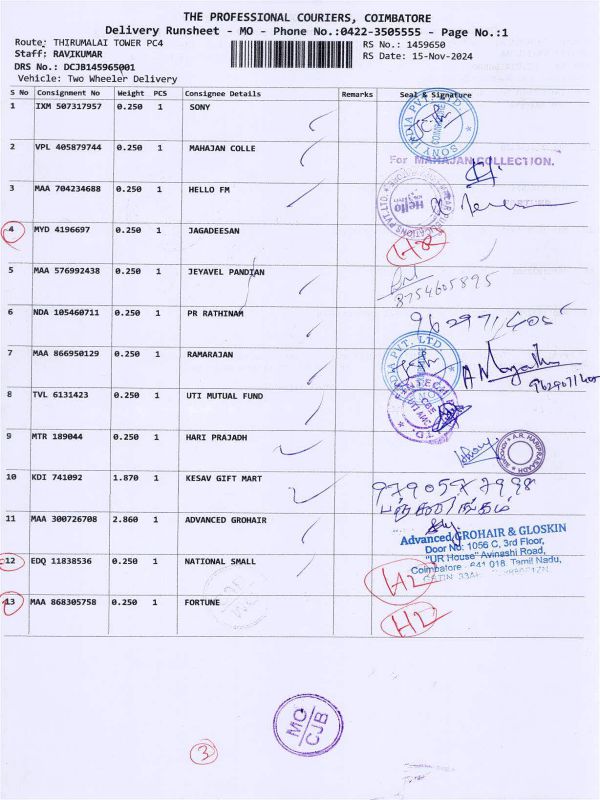 THE PROFESSIONAL COURIERS, COIMBATORE
Delivery Runsheet - MO - Phone No.:0422-3505555 - Page No.:1
Route: THIRUMALAI TOWER PC4
RS No.: 1459650
Staff: RAVIKUMAR
RS Date: 15-Nov-2024
DRS No.: DCJB145965001
Vehicle: Two Wheeler Delivery
S No Consignment No Weight PCS Consignee Details Remarks Seal & Signature
1 IXM 507317957 0.250 1 SONY
SONY INDIA PVT. LTD.
2 VPL 405879744 0.250 1 MAHAJAN COLLE
For MAHAJAN COLLECTION.
3 MAA 704234688 0.250 1 HELLO FM
Hello
4 MYD 4196697 0.250 1 JAGADEESAN
5 MAA 576992438 0.250 1 JEYAVEL PANDIAN
8754605895
6 NDA 105460711 0.250 1 PR RATHINAM
7 MAA 866950129 0.250 1 RAMARAJAN
8 TVL 6131423 0.250 1 UTI MUTUAL FUND
9 MTR 189044 0.250 1 HARI PRAJADH
10 KDI 741092 1.870 1 KESAV GIFT MART
11 MAA 300726708 2.860 1 ADVANCED GROHAIR
Advanced GROHAIR & GLOSKIN
Door No: 1056 C, 3rd Floor,
"UR House" Avinashi Road,
Coimbatore - 641 018. Tamil Nadu,
12 EDQ 11838536 0.250 1 NATIONAL SMALL
13 MAA 868305758 0.250 1 FORTUNE
MO
CJB
3